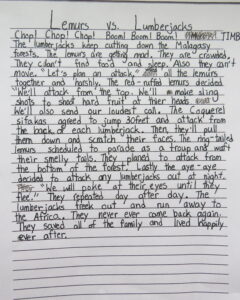 Lemurs vs. Lumberjacks
Chop! Chop! Chop! Boom! Boom! Boom! TIMB
The lumberjacks keep cutting down the Malagasy
forests. The lemurs are getting mad. They are crowded.
They can't find food and sleep. Also they can't
move. "Let's plan an attack," all the lemurs
together and harshly. The red-ruffed lemurs decided
"We'll attack from the top. We'll make sling
shots to shoot hard fruit at thier heads.
We'll also send our loudest call. The Coquerel
sifakas agreed to jump 30feet and attack from
the back of each lumberjack. Then, they'll pull
them down and scratch their faces. The ring-tailed
lemurs scheduled to parade as a troup and waft
their smelly tails. They planed to attack from
the bottom of the forest. Lastly the aye-aye
decided to attack any lumberjacks out at night.
"We will poke at their eyes until they
flee." They repeated day after day. The
lumberjacks freek out and run away to
the Africa. They never ever come back again.
They saved all of the family and lived happily
ever after.